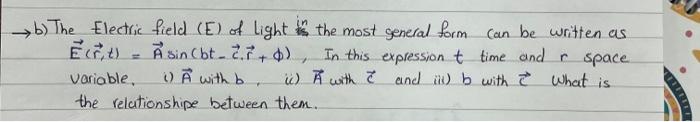 →b) The Electric field (E) of Light in the most general form can be written as
E⃗(r⃗,t) = A⃗ sin(bt - c⃗.r⃗ + ϕ), In this expression t time and r space
variable, i) A⃗ with b, ii) A⃗ with c⃗ and iii) b with c⃗ What is
the relationshipe between them.